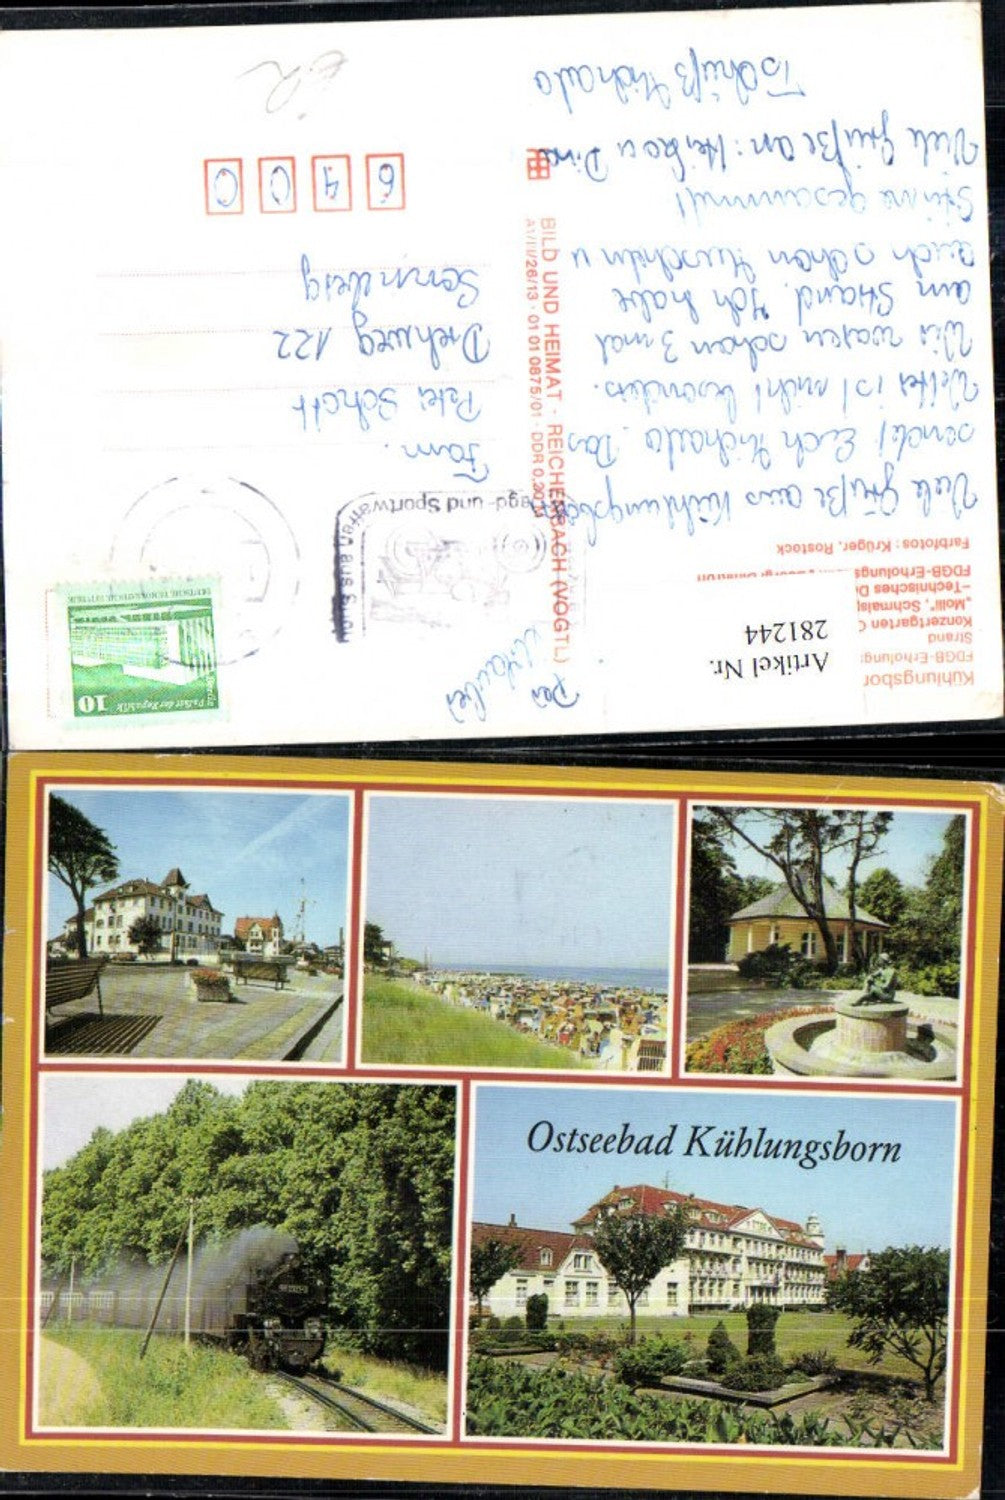 Kühlungsbor
FDGB-Erholung
Strand
Konzertgarten
"Molli", Schmals
–Technisches D
FDGB-Erholungs
Farbfotos: Krüger, Rostock
Artikel Nr.
281244
Viele Grüße aus Kühlungsborn
sendet Euch Das
Wetter ist nicht besonders.
Wir waren schon 3 mal
am Strand. Ich habe
auch schon Muscheln u
Steine gesammelt!
Viele Grüße an: Heiko u
Tschüß
BILD UND HEIMAT · REICHENBACH (VOGTL)
A1/III/26/13 · 01 01 0875/01 · DDR 0,20 M
Jagd- und Sportwaffen aus Suhl
10
Palast der Republik
Berlin
DEUTSCHE DEMOKRATISCHE REPUBLIK
Fam.
Peter Schott
Drehweg 122
Sonneberg
6400
Ostseebad Kühlungsborn